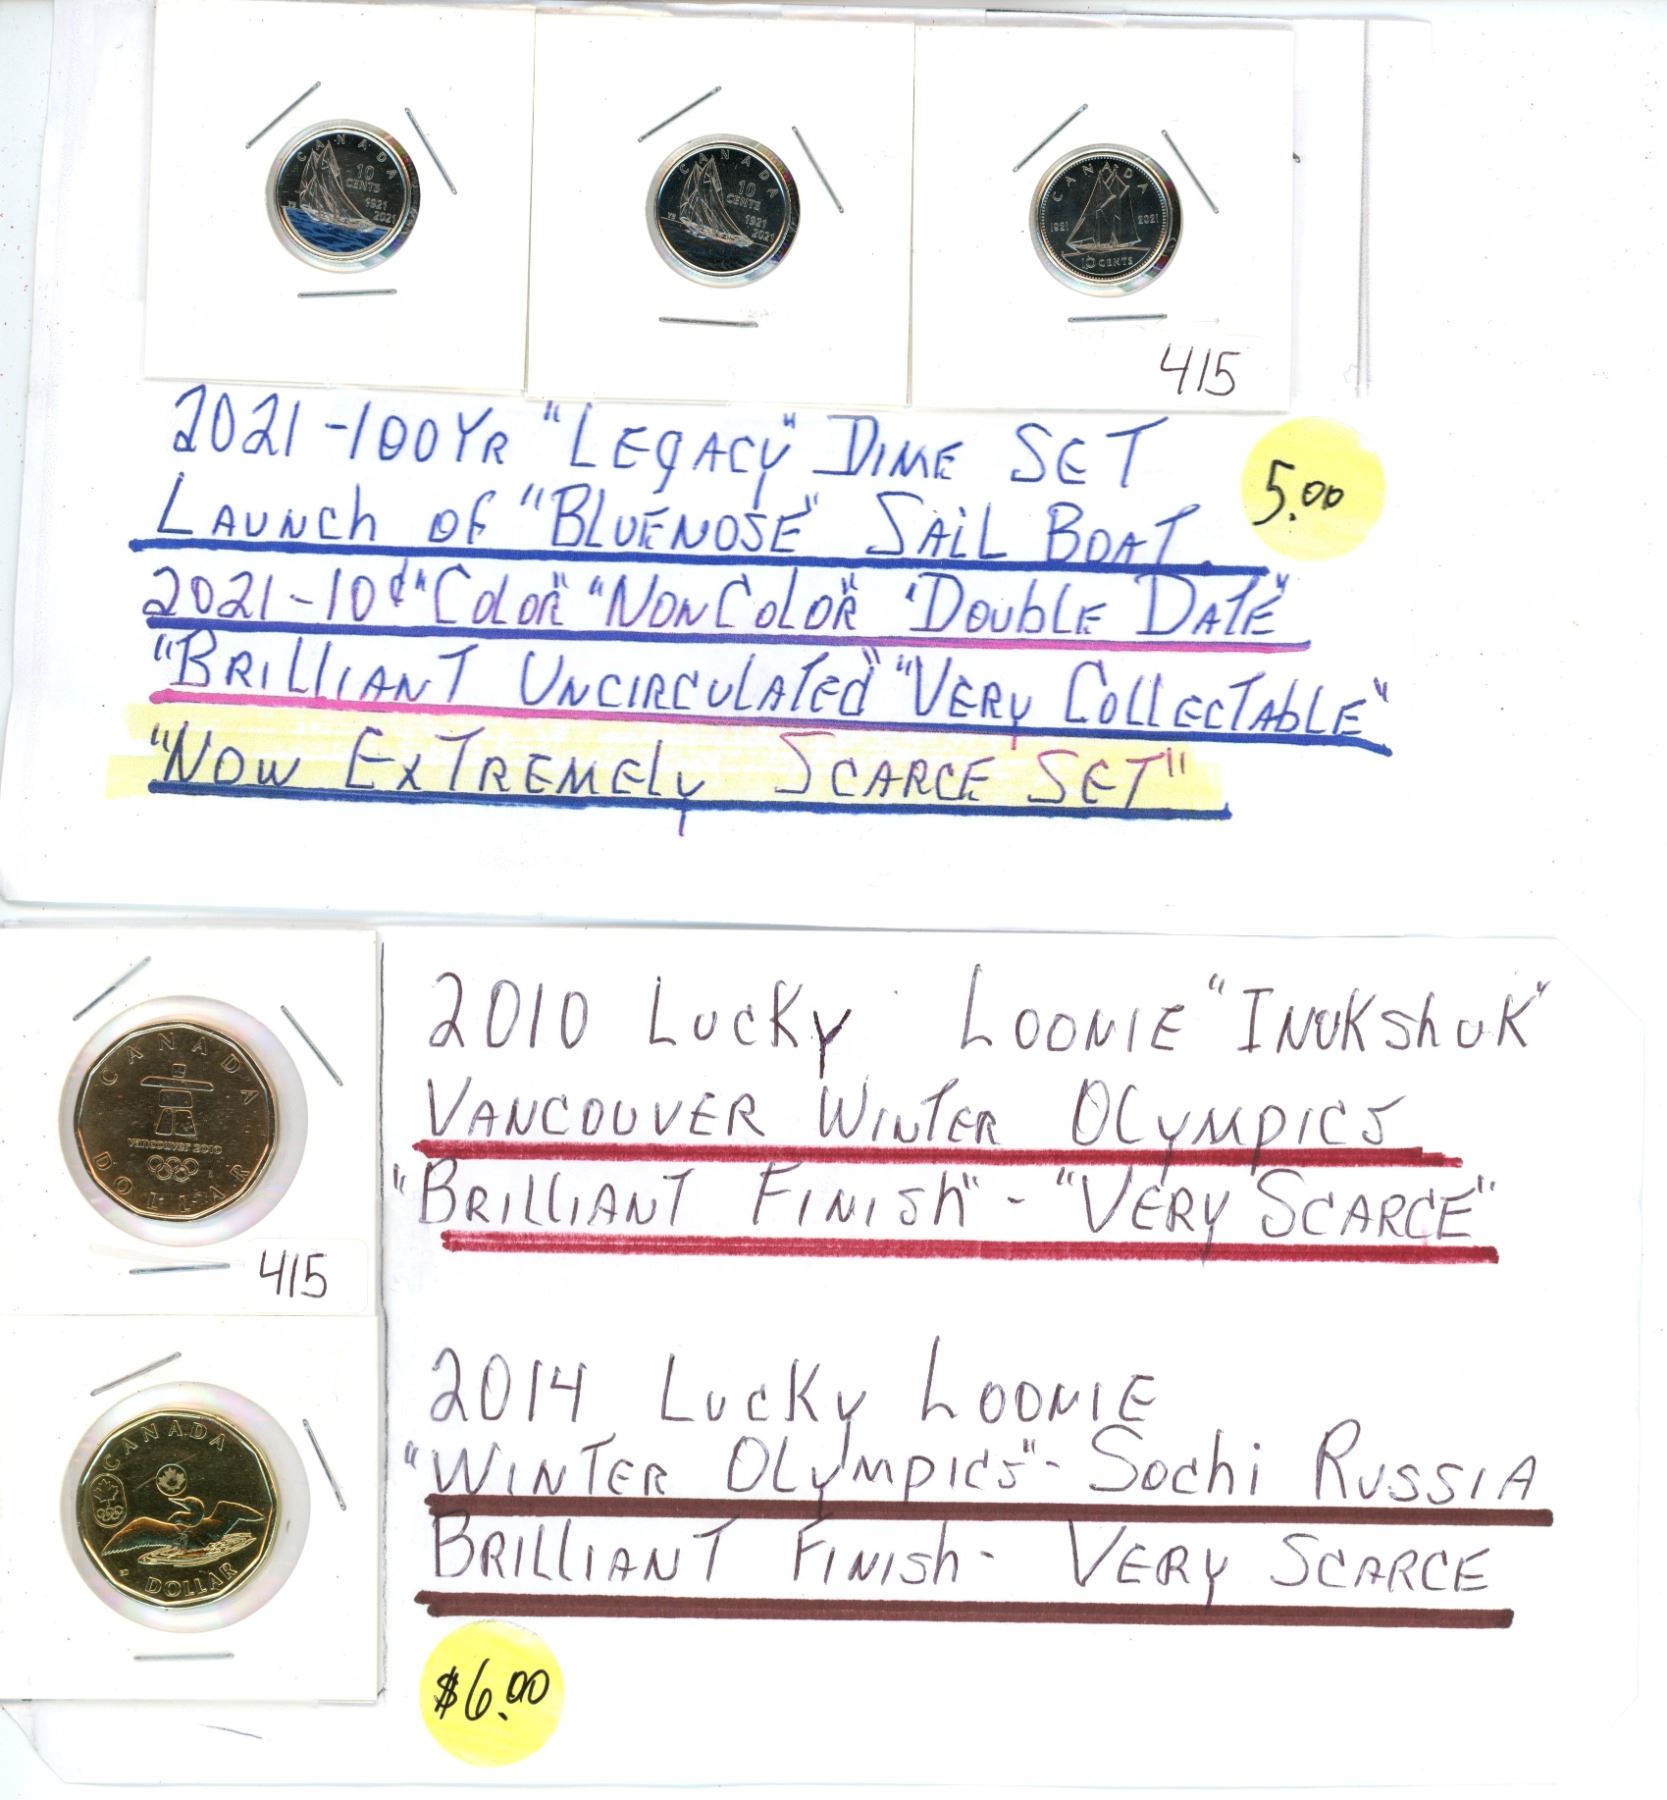 CANADA
10
CENTS
1921
2021
CANADA
10
CENTS
1921
2021
CANADA
1921 2021
10 CENTS
415
2021-100YR "LEGACY" DIME SET
LAUNCH OF "BLUENOSE" SAIL BOAT
5.00
2021-10¢ "COLOR" "NONCOLOR" "DOUBLE DATE"
"BRILLIANT UNCIRCULATED" "VERY COLLECTABLE"
"NOW EXTREMELY SCARCE SET"
CANADA
VANCOUVER 2010
DOLLAR
415
2010 LUCKY LOONIE "INUKSHUK"
VANCOUVER WINTER OLYMPICS
"BRILLIANT FINISH" - "VERY SCARCE"
CANADA
DOLLAR
2014 LUCKY LOONIE
"WINTER OLYMPICS" - SOCHI RUSSIA
BRILLIANT FINISH - VERY SCARCE
$6.00